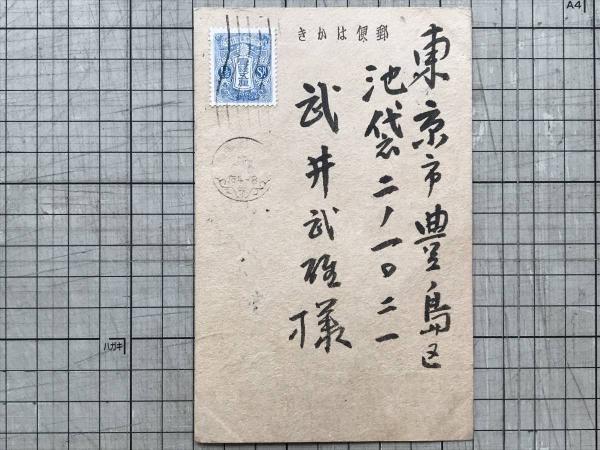 郵便はかき
東京市豊島区
池袋二ノ一〇二一
武井武雄様
A4
ハガキ